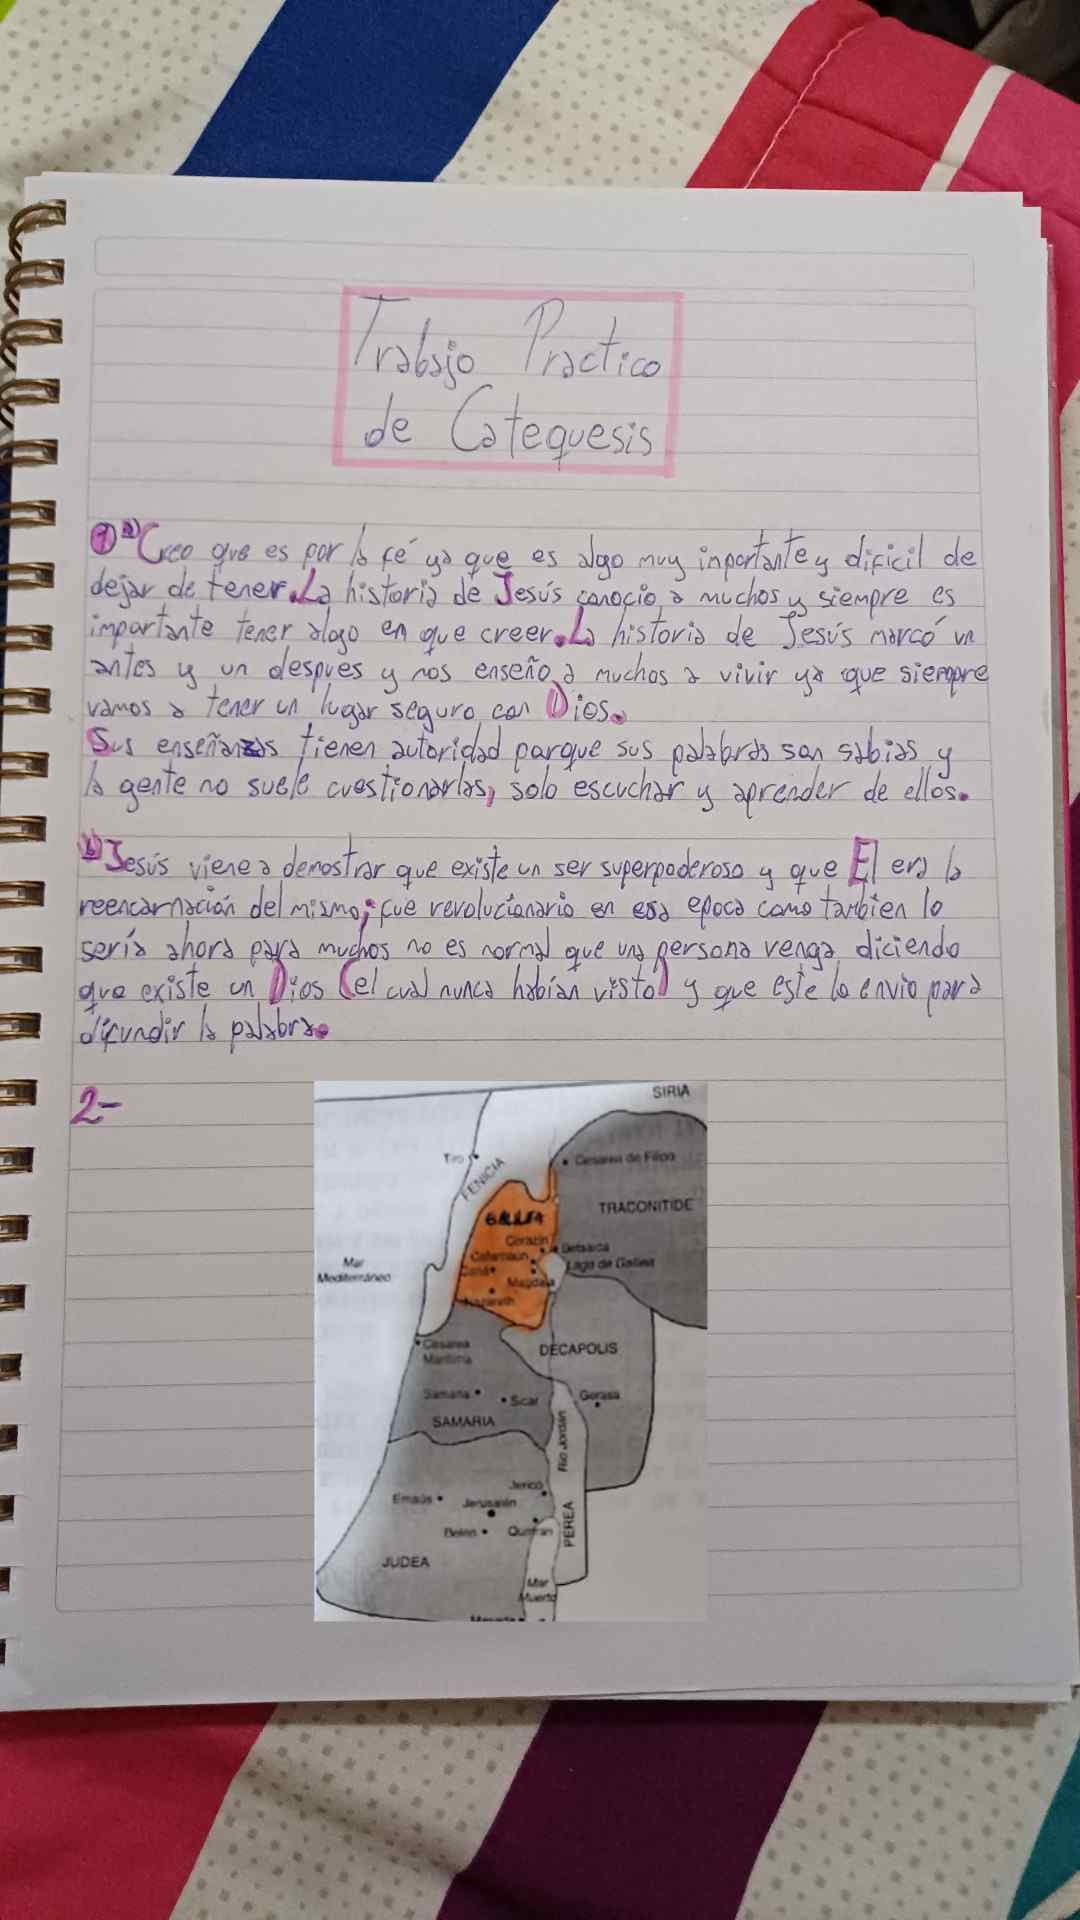 Trabajo Practico
de Catequesis
1 a) Creo que es por la fé ya que es algo muy inportante y dificil de
dejar de tener. La historia de Jesús conocio a muchos y siempre es
importante tener algo en que creer. La historia de Jesús marcó un
antes y un despues y nos enseño a muchos a vivir ya que siempre
vamos a tener un lugar seguro con Dios.
Sus enseñanzas tienen autoridad porque sus palabras son sabias y
la gente no suele cuestionarlas, solo escuchar y aprender de ellos.
b) Jesús viene a demostrar que existe un ser superpoderoso y que El era la
reencarnación del mismo; fue revolucionario en esa epoca como tambien lo
sería ahora para muchos no es normal que una persona venga diciendo
que existe un Dios (el cual nunca habían visto) y que este lo envio para
difundir la palabra.
2-
SIRIA
Tiro
FENICIA
Cesarea de Filipo
TRACONITIDE
GALILEA
Corazin
Cafarnaun
Betsaida
Lago de Galilea
Caná
Magdala
Nazareth
Mar
Mediterráneo
Cesarea
Maritima
DECAPOLIS
Samaria
Sicar
Gerasa
SAMARIA
Rio Jordan
Jericó
Emaús
Jerusalén
Belen
Qumran
PEREA
JUDEA
Mar
Muerto